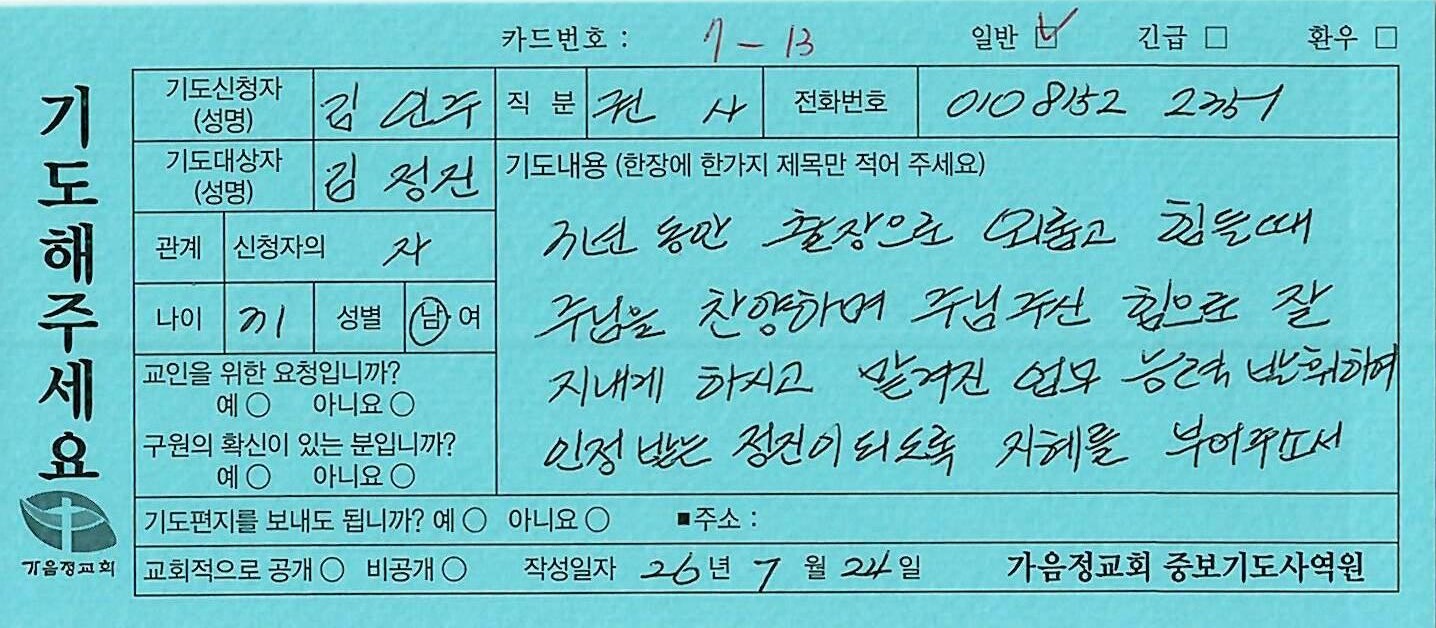 카드번호 : 7 - 13 일반 ☑ 긴급 □ 환우 □
기도해주세요
기도신청자 (성명) 김 인주 직 분 권 사 전화번호 010 8152 2351
기도대상자 (성명) 김 정진
관계 신청자의 자
나이 31 성별 남 여
교인을 위한 요청입니까?
예 ○ 아니요 ○
구원의 확신이 있는 분입니까?
예 ○ 아니요 ○
기도내용 (한장에 한가지 제목만 적어 주세요)
동안 출장으로 외롭고 힘들때
주님을 찬양하며 주님주신 힘으로 잘
지내게 하시고 맡겨진 업무 능력 발휘하여
인정 받는 정진이 되도록 지혜를 부어주소서
기도편지를 보내도 됩니까? 예 ○ 아니요 ○ ■주소 :
교회적으로 공개 ○ 비공개 ○ 작성일자 26 년 7 월 24 일 가음정교회 중보기도사역원
가음정교회